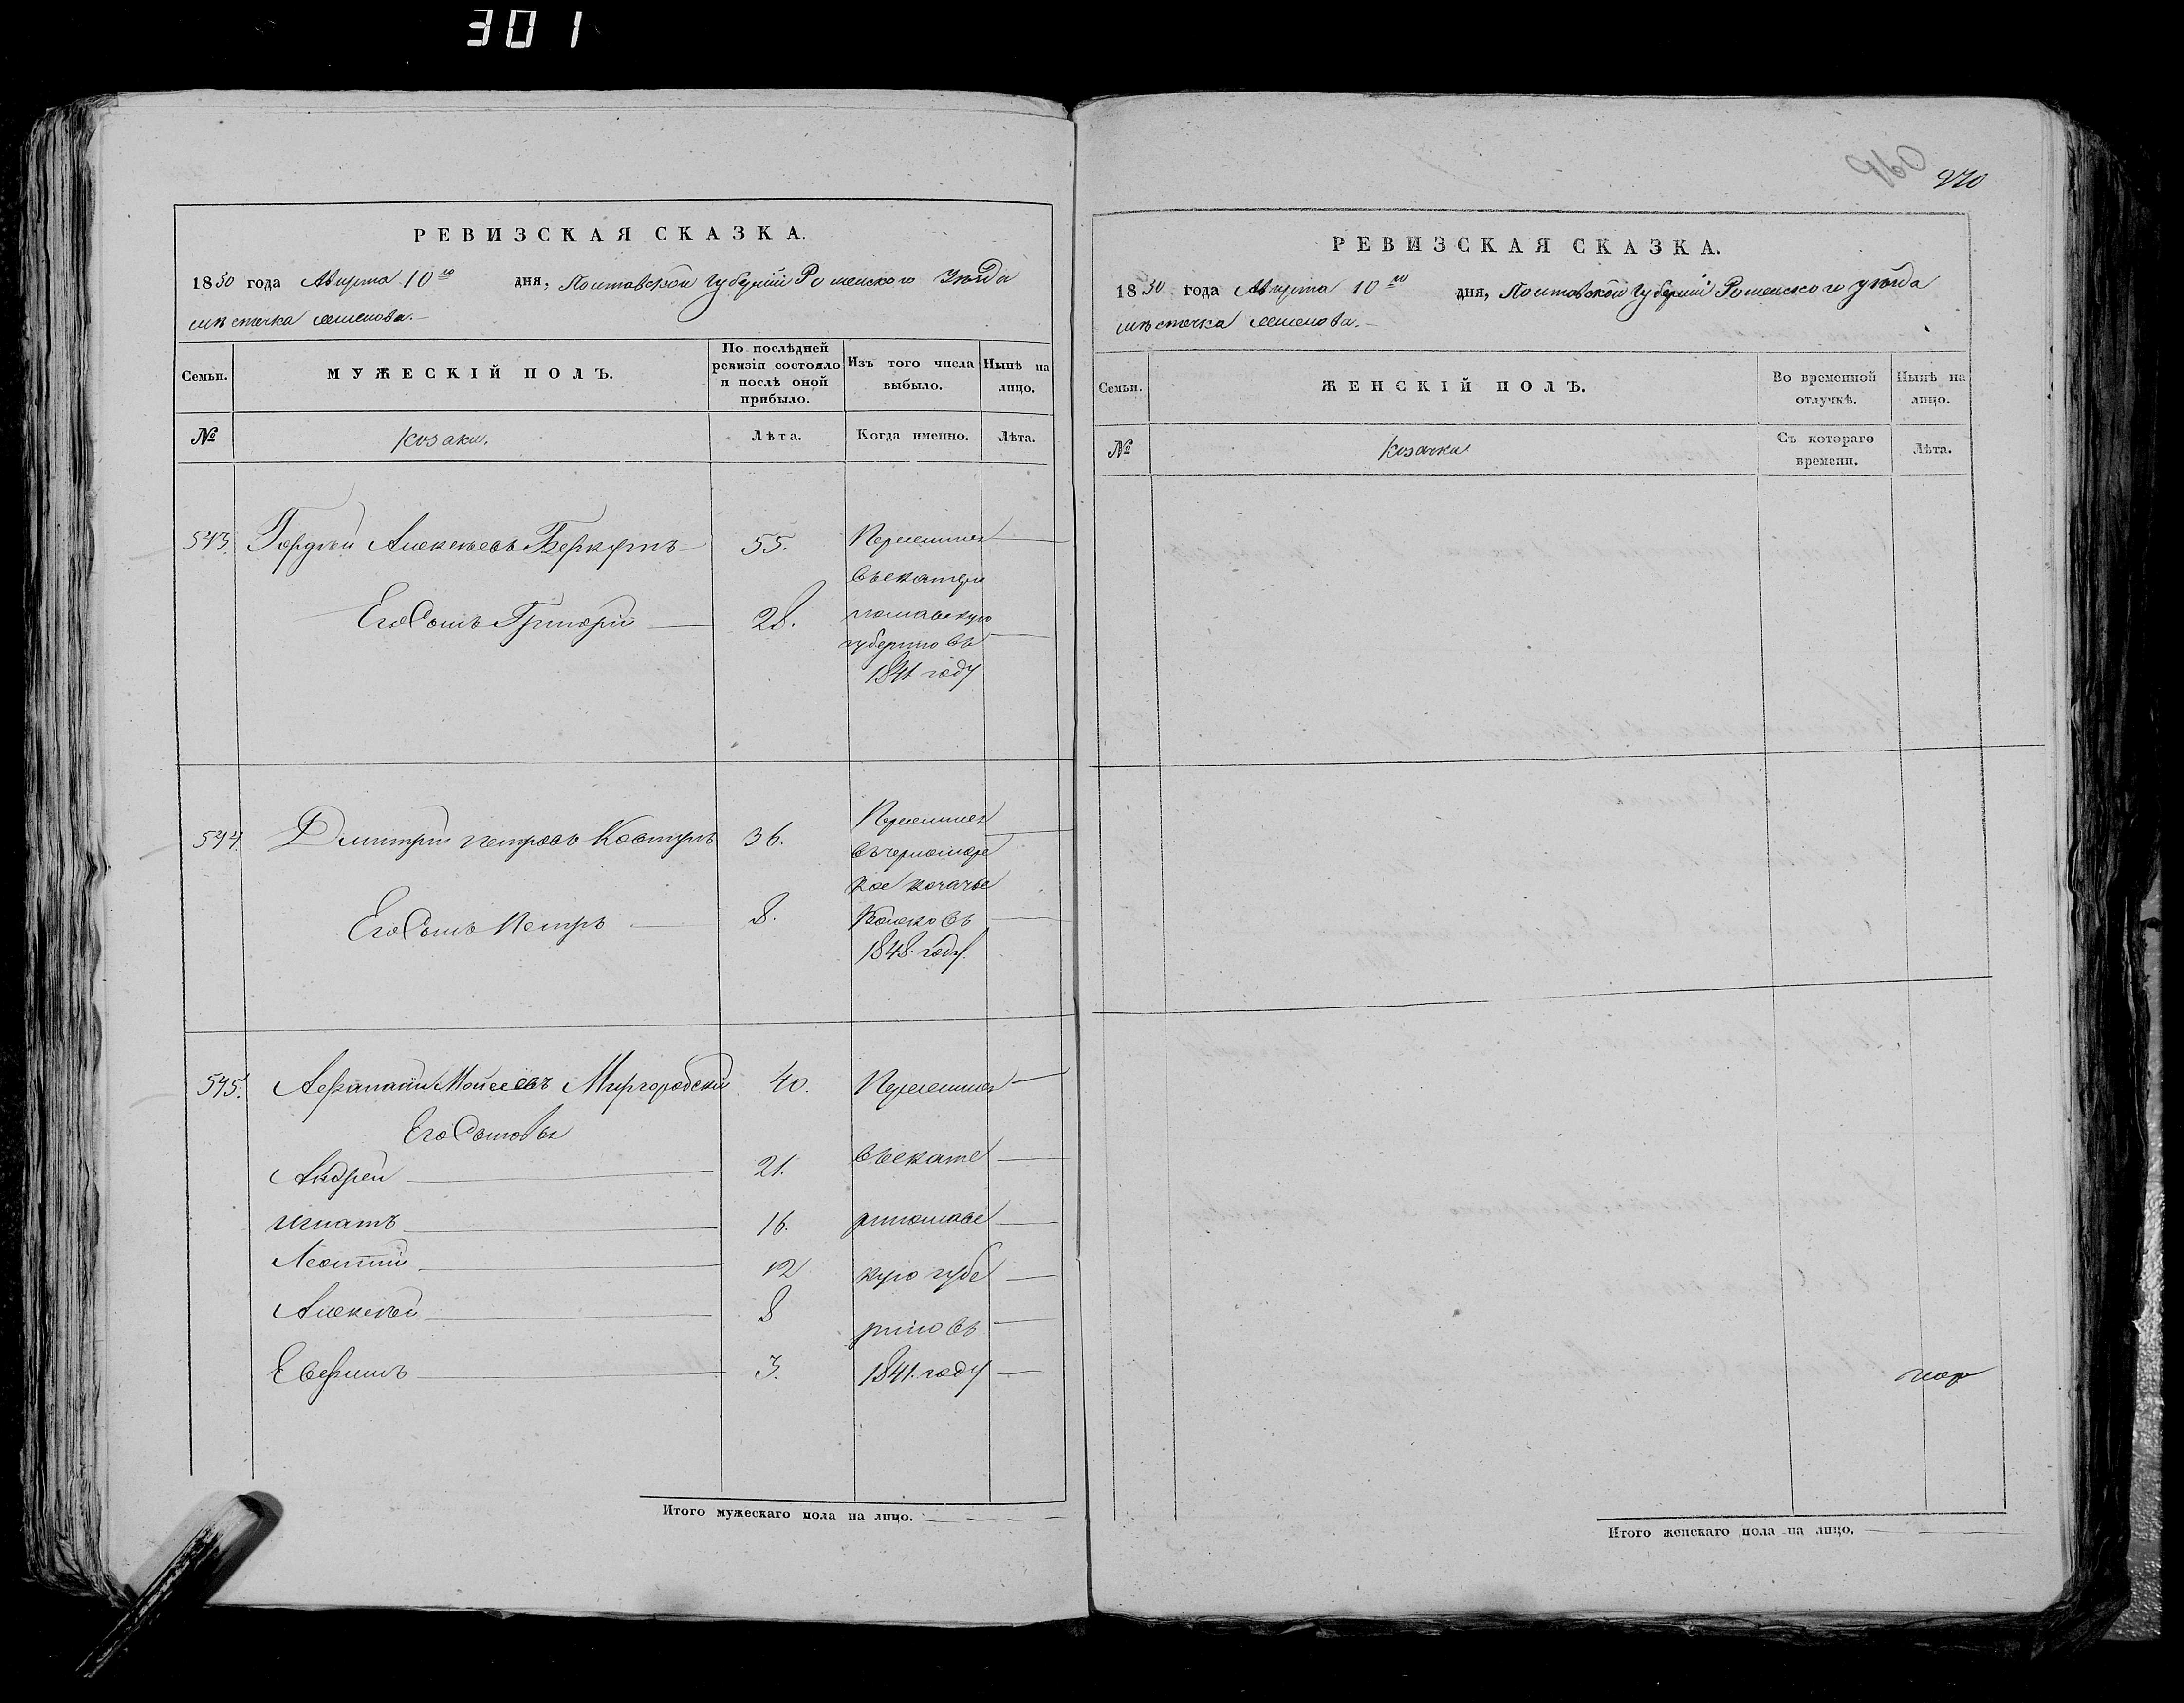 301
РЕВИЗСКАЯ СКАЗКА.
1850 года Августа 10го дня, Полтавской Губернiи Роменского Уѣзда
мѣстечка
Семьи.
МУЖЕСКІЙ ПОЛЪ.
По послѣдней ревизіи состояло и послѣ оной прибыло.
Изъ того числа выбыло.
Нынѣ на лицо.
№
Козаки.
Лѣта.
Когда именно.
Лѣта.
543. Гордѣй Алексѣевъ Беркутъ 55. Переселился
въ Екатери
Его Сынъ Григорій 28. нославскую
губернію въ
1841 году
544. Дмитрій Петровъ 36. Переселился
въ черномор
ское козачье
Его Сынъ Петръ 8. Войско въ
1848. году.
545. Афанасій Моисеевъ Миргородскій 40. Переселился
Его Сыновья
Андрей 21. въ Екате
Игнатъ 16. ринослав
Леонтій 12 скую губе
Алексѣй 8 рнію въ
Евфимъ 3. 1841. году
Итого мужескаго пола на лицо.
270
РЕВИЗСКАЯ СКАЗКА.
1850 года Августа 10го дня, Полтавской Губерніи Роменского уѣзда
мѣстечка
Семьи.
ЖЕНСКІЙ ПОЛЪ.
Во временной отлучкѣ.
Нынѣ на лицо.
№
Козачки
Съ котораго времени.
Лѣта.
Итого женскаго пола на лицо.